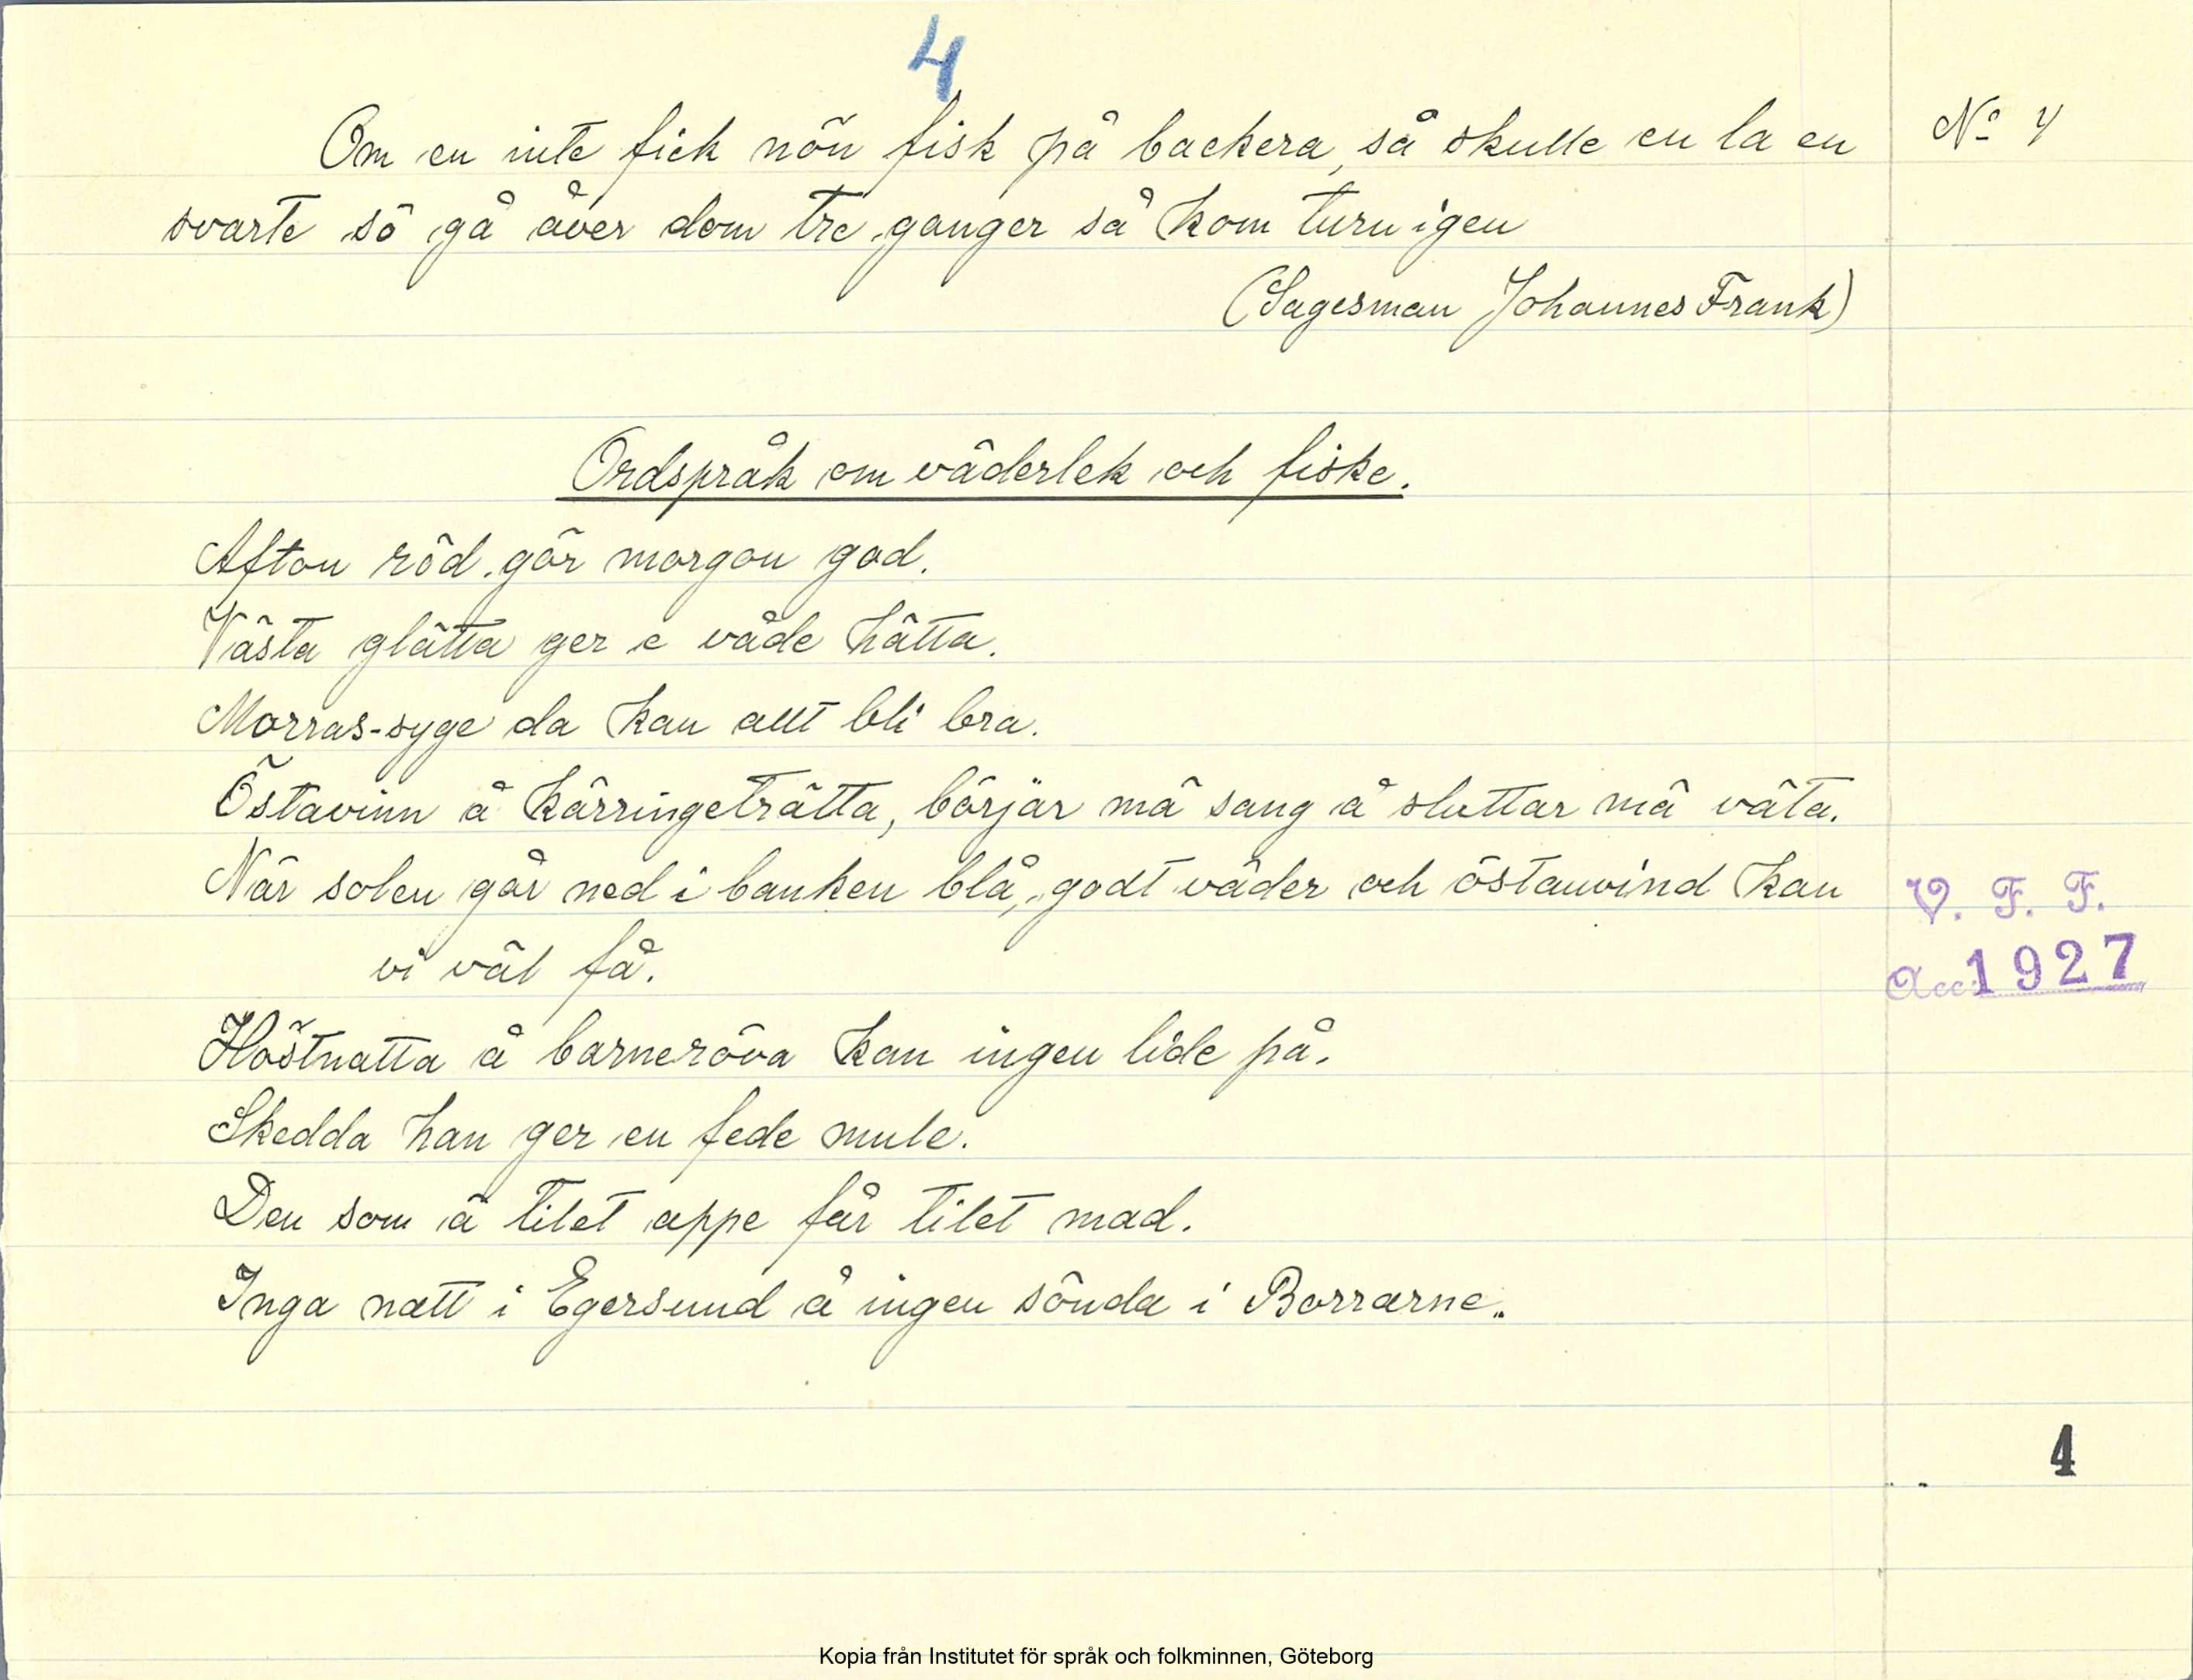 4
Om en inte fick nôn fisk på backera, så skulle en la en
svarte sô gå åver dom tre ganger så kom turn igen
(Sagesman Johannes Frank)
Nº 4
Ordspråk om väderlek och fiske.
Afton röd gör morgon god.
Västa glätta ger e våde hätta.
Morras-syge da kan allt bli bra.
Östavinn å kärringeträtta, börjär mä sang å sluttar mä väta.
När solen går ned i banken blå, godt väder och östanvind kan
vi väl få.
V. F. F.
Acc. 1927
Höstnatta å barneröva kan ingen lide på.
Skedda han ger en fede mule.
Den som ä titet oppe får titet mad.
Inga natt i Egersund å ingen sönda i Borrarne.
4
Kopia från Institutet för språk och folkminnen, Göteborg